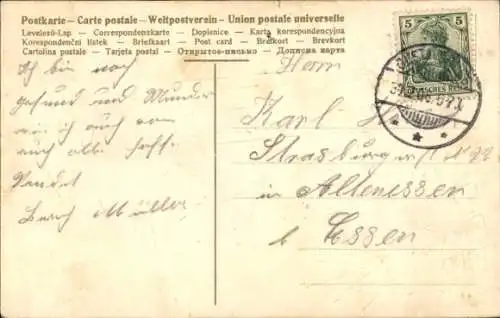 Postkarte - Carte postale - Weltpostverein - Union postale universelle
Levelező-Lap. - Correspondenzkarte - Dopisnice - Karta korespondencyjna
Korespondenční lístek - Briefkaart - Post card - Brefkort - Brevkort
Cartolina postale - Tarjeta postal - Открытое письмо - Дописна карта
5 5
DEUTSCHES REICH
Ich bin noch
gesund und Munder
wie ich auch von
auch alle hoffe
Sendet
Müller
Herrn
Karl
Strasburger
in Altenessen
b Essen